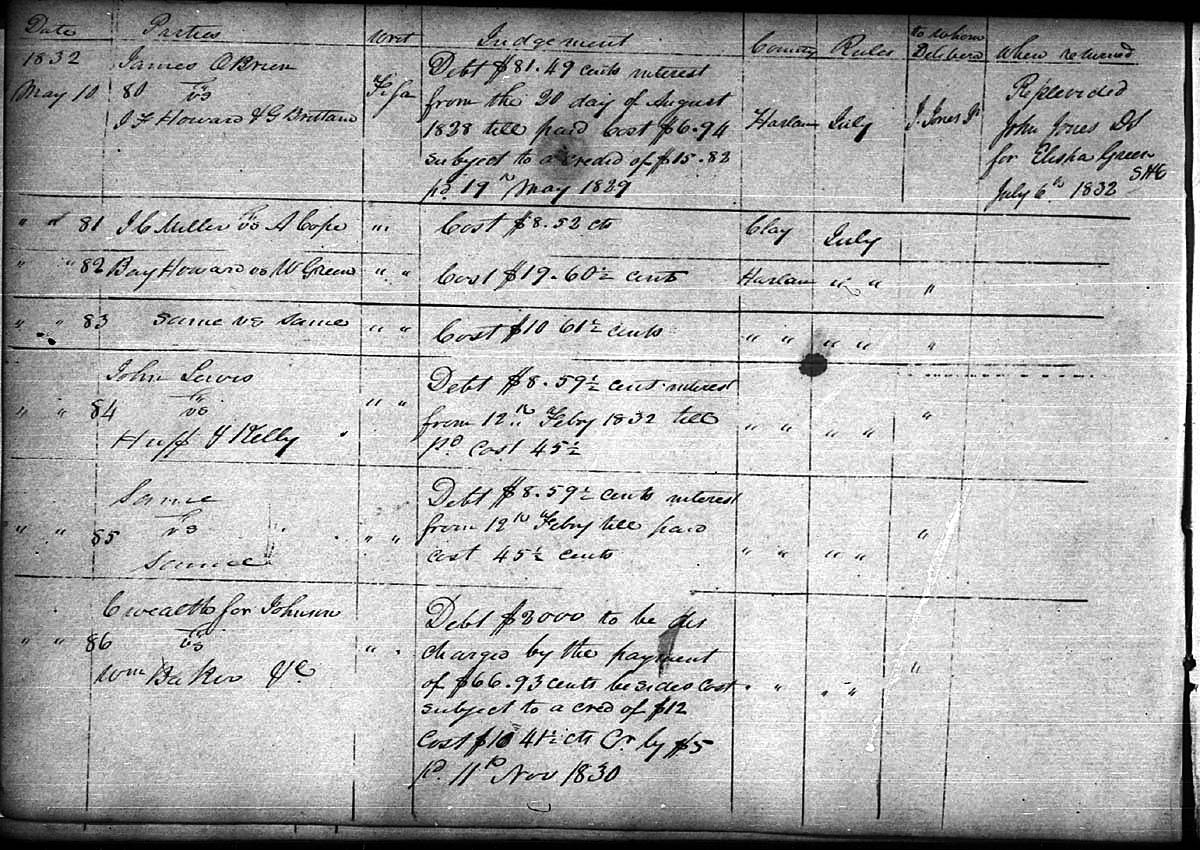 Date Parties Writ Judgement County Rules to whom Delibera When returned
1832 James OBrien Debt $81.49 cents interest
May 10 80 vs Fi fa from the 20 day of August Harlan July J. Jones Jr Replevided
J F Howard & G Brittain 1828 till paid Cost $6.94 John Jones DS
subject to a credid of $15.82 for Elisha Green
pd 19th May 1829 July 6th 1832 SHC
" " 81 J C Miller vs A Cope " " Cost $8.52 cts Clay July
" " 82 Bay Howard vs W Green " " Cost $19.60½ cents Harlan " " "
" " 83 Same vs Same " " Cost $10 61½ cents " " " " "
John Lewis Debt $8.59½ cent interest
" " 84 vs " " from 12th Febry 1832 till " " " " "
Huff & Kelly pd Cost 45½
Same Debt $8.59½ cents interest
" " 85 vs " " from 12th Febry till paid " " " " "
Same cost 45½ cents
Cwealth for Johnson Debt $2000 to be dis
" " 86 vs " " charged by the payment "
Wm Baker &C of $66.93 cents besides cost " " " "
subject to a cred of $12
Cost $10 41½ cts Cr by $5
pd 11th Nov 1830